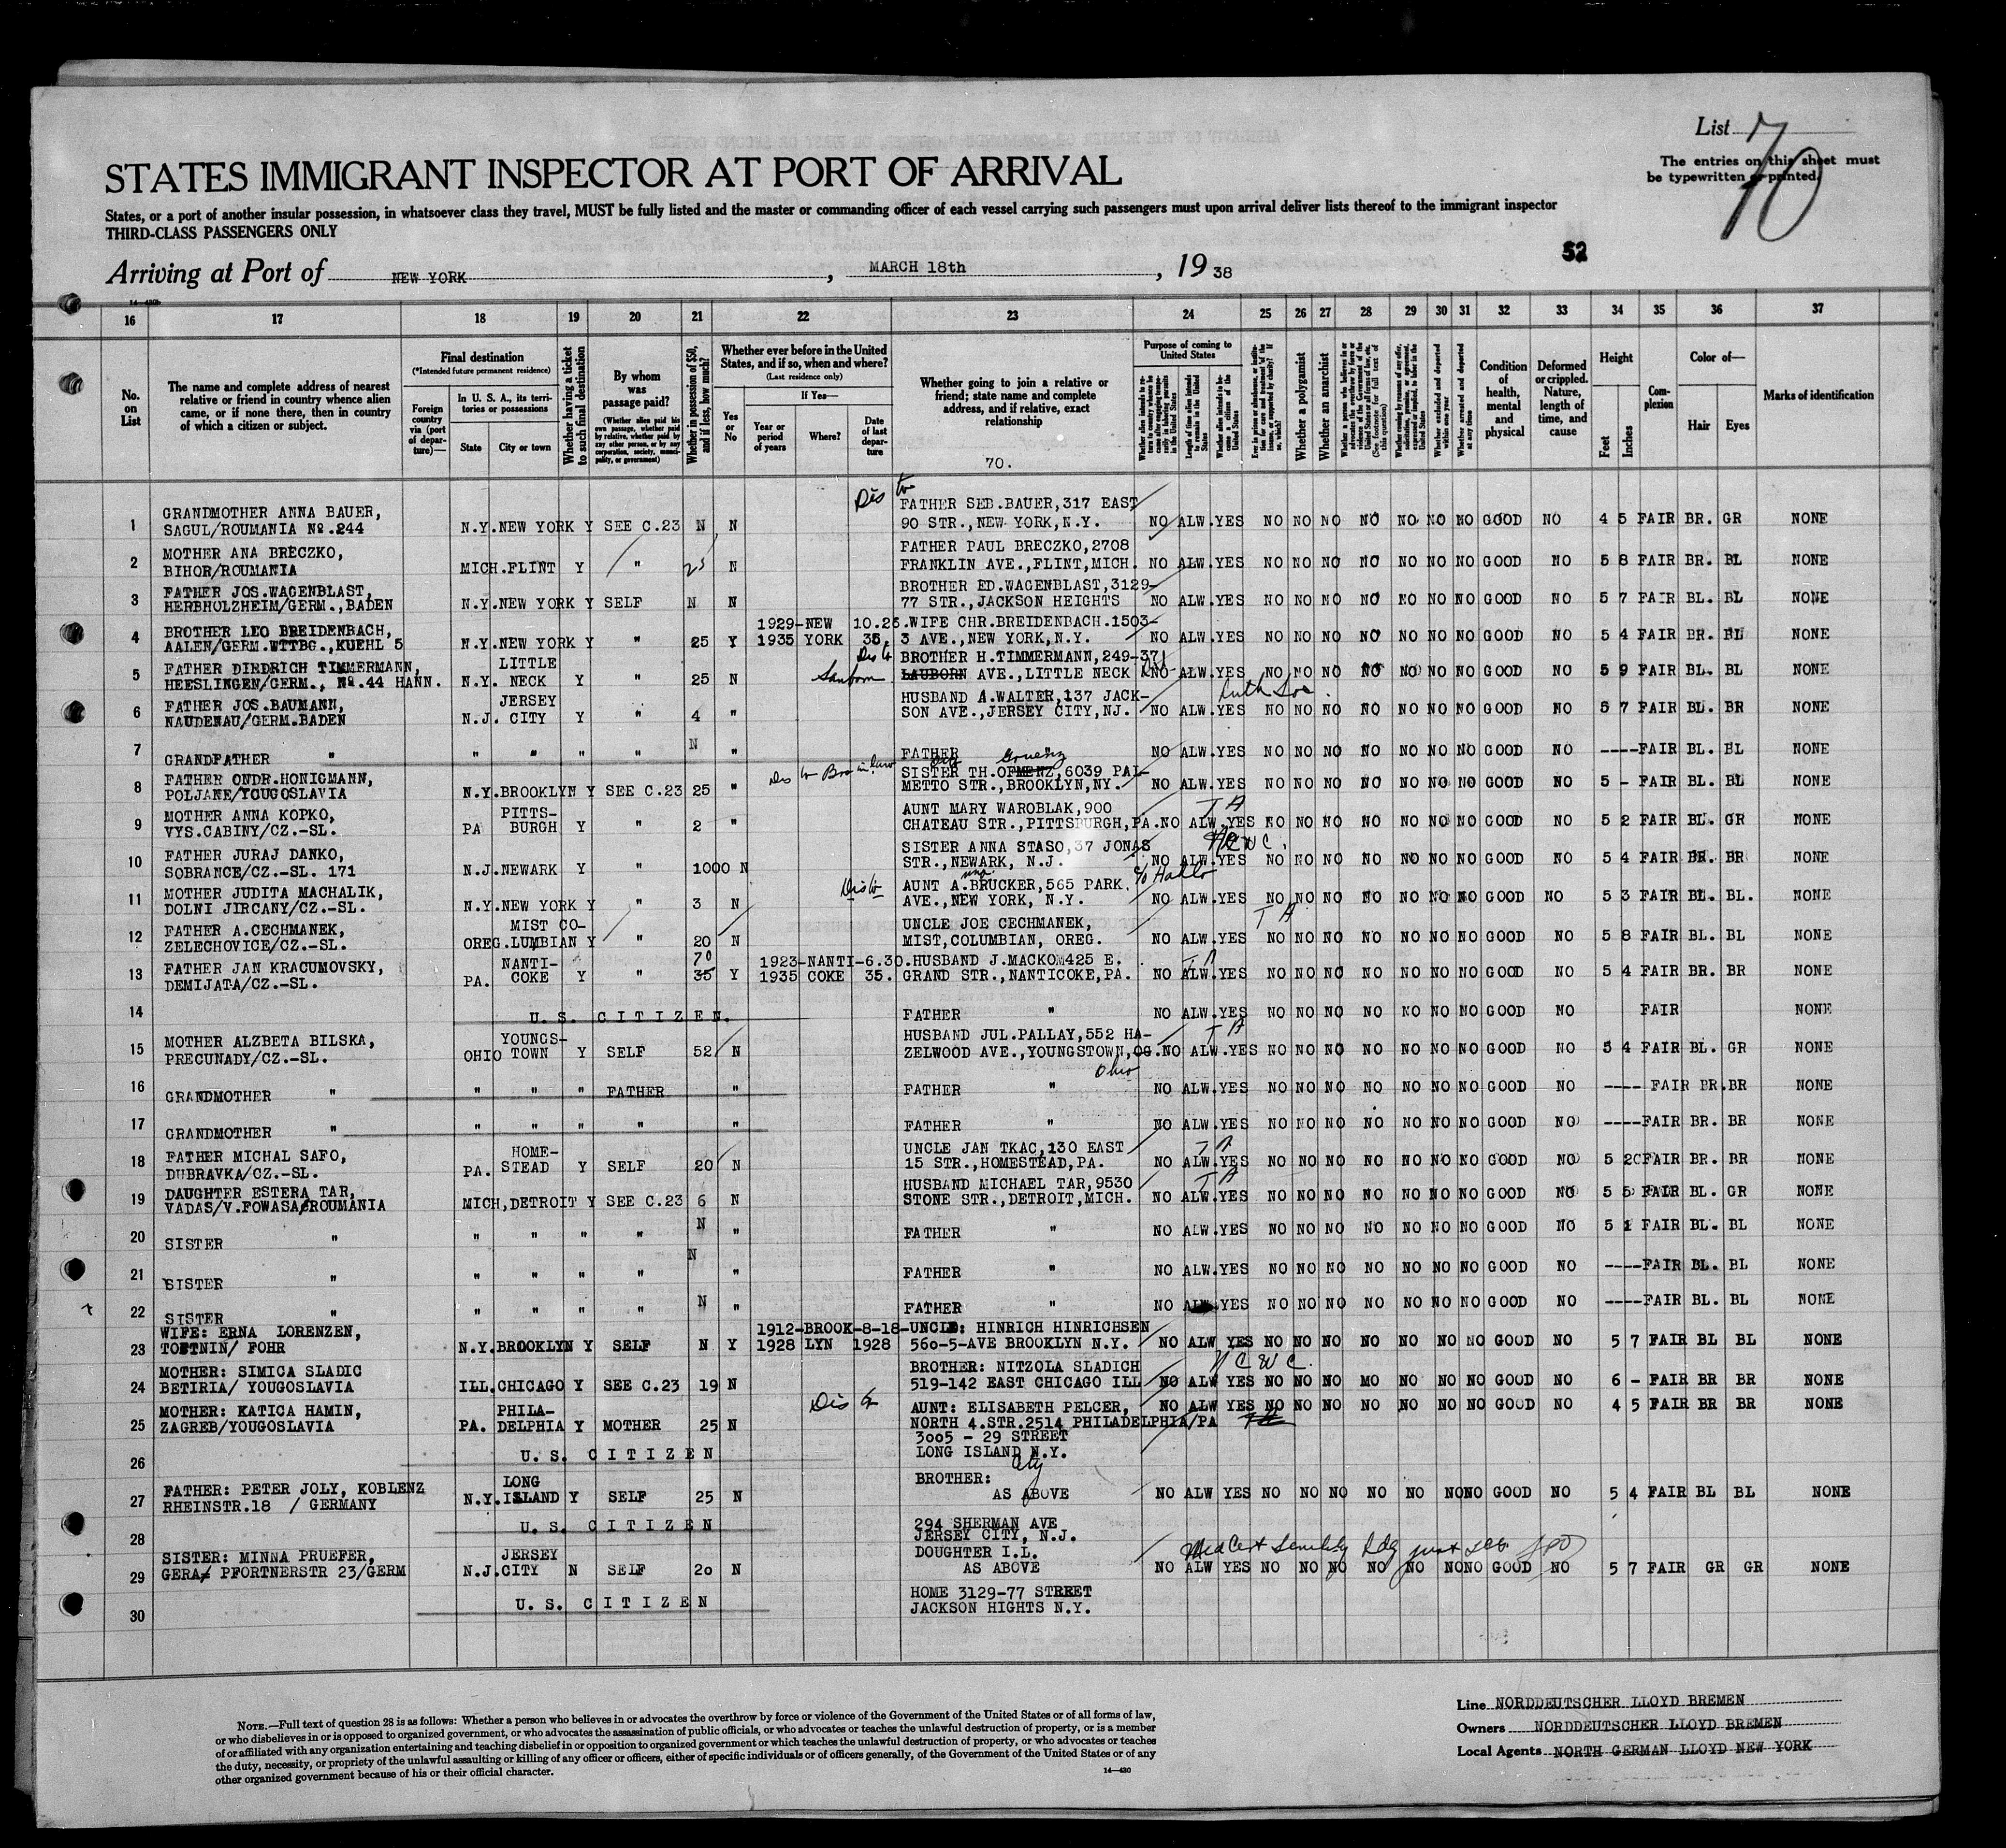 List 70
The entries on this sheet must
be typewritten or printed.
STATES IMMIGRANT INSPECTOR AT PORT OF ARRIVAL
States, or a port of another insular possession, in whatsoever class they travel, MUST be fully listed and the master or commanding officer of each vessel carrying such passengers must upon arrival deliver lists thereof to the immigrant inspector
THIRD-CLASS PASSENGERS ONLY
52
Arriving at Port of NEW YORK, MARCH 18th, 19 38
16 17 18 19 20 21 22 23 24 25 26 27 28 29 30 31 32 33 34 35 36 37
No. on List
The name and complete address of nearest relative or friend in country whence alien came, or if none there, then in country of which a citizen or subject.
Final destination
(*Intended future permanent residence)
Foreign country via (port of departure)—
In U. S. A., its territories or possessions
State
City or town
Whether having a ticket to such final destination
By whom was passage paid?
(Whether alien paid his own passage, whether paid by relative, whether paid by any other person, or by any corporation, society, municipality, or government)
Whether in possession of $50, and if less, how much?
Whether ever before in the United States, and if so, when and where?
(Last residence only)
Yes or No
If Yes—
Year or period of years
Where?
Date of last departure
Whether going to join a relative or friend; state name and complete address, and if relative, exact relationship
70.
Purpose of coming to United States
Length of time alien intends to remain in the United States
Whether alien intends to become a citizen of the United States
Whether a polygamist
Whether an anarchist
Whether excluded and deported within one year
Whether arrested and deported at any time
Condition of health, mental and physical
Deformed or crippled. Nature, length of time, and cause
Height
Feet
Inches
Complexion
Color of—
Hair
Eyes
Marks of identification
Dis to
GRANDMOTHER ANNA BAUER, FATHER SEB.BAUER,317 EAST
1 SAGUL/ROUMANIA No.244 N.Y. NEW YORK Y SEE C.23 N N 90 STR.,NEW YORK,N.Y. NO ALW.YES NO NO NO NO NO NO NO GOOD NO 4 5 FAIR BR. GR NONE
MOTHER ANA BRECZKO, FATHER PAUL BRECZKO,2708
2 BIHOR/ROUMANIA MICH.FLINT Y " 25 N FRANKLIN AVE.,FLINT,MICH. NO ALW.YES NO NO NO NO NO NO NO GOOD NO 5 8 FAIR BR. BL NONE
FATHER JOS.WAGENBLAST, BROTHER ED.WAGENBLAST,3129-
3 HERBHOLZHEIM/GERM.,BADEN N.Y. NEW YORK Y SELF N N 77 STR.,JACKSON HEIGHTS NO ALW.YES NO NO NO NO NO NO NO GOOD NO 5 7 FAIR BL. BL NONE
BROTHER LEO BREIDENBACH, 1929-NEW 10.26.WIFE CHR.BREIDENBACH.1503-
4 AALEN/GERM.WTTBG.,KUEHL 5 N.Y. NEW YORK Y " 25 Y 1935 YORK 36. 3 AVE.,NEW YORK,N.Y. NO ALW.YES NO NO NO NO NO NO NO GOOD NO 5 4 FAIR BR. BL NONE
FATHER DIEDRICH TIMMERMANN, LITTLE Dis to BROTHER H.TIMMERMANN,249-37
5 HEESLINGEN/GERM., No.44 HANN. N.Y. NECK Y " 25 N Sanborn LAUBORN AVE.,LITTLE NECK NO ALW.YES NO NO NO NO NO NO NO GOOD NO 5 9 FAIR BL. BL NONE
Luth Soc.
FATHER JOS.BAUMANN, JERSEY HUSBAND A.WALTER,137 JACK-
6 NAUDENAU/GERM.BADEN N.J. CITY Y " 4 " SON AVE.,JERSEY CITY,NJ. NO ALW.YES NO NO NO NO NO NO NO GOOD NO 5 7 FAIR BL. BR NONE
7 GRANDFATHER " " " " " N " FATHER " NO ALW.YES NO NO NO NO NO NO NO GOOD NO ----FAIR BL. BL NONE
Dis to Bro in law
FATHER ONDR.HONIGMANN, SISTER TH.OFMENZ,6039 PAL-
8 POLJANE/YOUGOSLAVIA N.Y. BROOKLYN Y SEE C.23 25 " METTO STR.,BROOKLYN,NY. NO ALW.YES NO NO NO NO NO NO NO GOOD NO 5 - FAIR BL. BL NONE
MOTHER ANNA KOPKO, PITTS- AUNT MARY WAROBLAK,900 T A
9 VYS.CABINY/CZ.-SL. PA BURGH Y " 2 " CHATEAU STR.,PITTSBURGH,PA.NO ALW.YES NO NO NO NO NO NO NO GOOD NO 5 2 FAIR BL. GR NONE
FATHER JURAJ DANKO, SISTER ANNA STASO,37 JONAS NCWC.
10 SOBRANCE/CZ.-SL. 171 N.J. NEWARK Y " 1000 N STR.,NEWARK, N.J. NO ALW.YES NO NO NO NO NO NO NO GOOD NO 5 4 FAIR BR. BR NONE
MOTHER JUDITA MACHALIK, Dis to AUNT A.BRUCKER,565 PARK.
11 DOLNI JIRCANY/CZ.-SL. N.Y. NEW YORK Y " 3 N AVE.,NEW YORK, N.Y. NO ALW.YES NO NO NO NO NO NO NO GOOD NO 5 3 FAIR BL. BL. NONE
FATHER A.CECHMANEK, MIST CO- UNCLE JOE CECHMANEK, T A
12 ZELECHOVICE/CZ.-SL. OREG.LUMBIAN Y " 20 N MIST,COLUMBIAN, OREG. NO ALW.YES NO NO NO NO NO NO NO GOOD NO 5 8 FAIR BL. BL NONE
FATHER JAN KRACUMOVSKY, NANTI- 70 1923-NANTI-6.30.HUSBAND J.MACKOM425 E. T A
13 DEMIJATA/CZ.-SL. PA. COKE Y " 35 Y 1935 COKE 35. GRAND STR.,NANTICOKE,PA. NO ALW.YES NO NO NO NO NO NO NO GOOD NO 5 4 FAIR BR. BR NONE
14 U.S. CITIZEN. FATHER " NO ALW.YES NO NO NO NO NO NO NO GOOD NO FAIR NONE
MOTHER ALZBETA BILSKA, YOUNGS- HUSBAND JUL.PALLAY,552 HA- T A
15 PRECUNADY/CZ.-SL. OHIO TOWN Y SELF 52 N ZELWOOD AVE.,YOUNGSTOWN,OG.NO ALW.YES NO NO NO NO NO NO NO GOOD NO 5 4 FAIR BL. GR NONE
Ohio
16 GRANDMOTHER " " " " FATHER " FATHER " NO ALW.YES NO NO NO NO NO NO NO GOOD NO ---- FAIR BR.BR NONE
17 GRANDMOTHER " " " " " " FATHER " NO ALW.YES NO NO NO NO NO NO NO GOOD NO ----FAIR BR. BR NONE
FATHER MICHAL SAFO, HOME- UNCLE JAN TKAC,130 EAST T A
18 DUBRAVKA/CZ.-SL. PA. STEAD Y SELF 20 N 15 STR.,HOMESTEAD,PA. NO ALW.YES NO NO NO NO NO NO NO GOOD NO 5 2 FAIR BR. BR NONE
DAUGHTER ESTERA TAR, HUSBAND MICHAEL TAR,9530 T A
19 VADAS/V.FOWASA/ROUMANIA MICH,DETROIT Y SEE C.23 6 N STONE STR.,DETROIT,MICH. NO ALW.YES NO NO NO NO NO NO NO GOOD NO 5 5 FAIR BL. GR NONE
20 SISTER " " " " " N " FATHER " NO ALW.YES NO NO NO NO NO NO NO GOOD NO 5 1 FAIR BL. BL NONE
21 SISTER " " " " " N " FATHER " NO ALW.YES NO NO NO NO NO NO NO GOOD NO ----FAIR BL. BL NONE
22 SISTER " " " " " N " FATHER " NO ALW.YES NO NO NO NO NO NO NO GOOD NO ----FAIR BL. BL NONE
WIFE: ERNA LORENZEN, 1912-BROOK-8-18-UNCLE: HINRICH HINRICHSEN
23 TOFTNIN/ FOHR N.Y. BROOKLYN Y SELF N Y 1928 LYN 1928 560-5-AVE BROOKLYN N.Y. NO ALW YES NO NO NO NO NO NO NO GOOD NO 5 7 FAIR BL BL NONE
MOTHER: SIMICA SLADIC BROTHER: NITZOLA SLADICH N C W C.
24 BETIRIA/ YOUGOSLAVIA ILL. CHICAGO Y SEE C.23 19 N 519-142 EAST CHICAGO ILL NO ALW YES NO NO NO MO NO NO NO GOOD NO 6 - FAIR BR BR NONE
MOTHER: KATICA HAMIN, PHILA- Dis to AUNT: ELISABETH PELCER, NO ALW YES NO NO NO NO NO NO NO GOOD NO 4 5 FAIR BR BR NONE
25 ZAGREB/YOUGOSLAVIA PA. DELPHIA Y MOTHER 25 N NORTH 4.STR.2514 PHILADELPHIA/PA
3005 - 29 STREET
26 U.S. CITIZEN LONG ISLAND N.Y.
City
FATHER: PETER JOLY, KOBLENZ LONG BROTHER:
27 RHEINSTR.18 / GERMANY N.Y. ISLAND Y SELF 25 N AS ABOVE NO ALW YES NO NO NO NO NO NO NO GOOD NO 5 4 FAIR BL BL NONE
28 U.S. CITIZEN 294 SHERMAN AVE
JERSEY CITY, N.J.
SISTER: MINNA PRUEFER, JERSEY DOUGHTER I.L. Med Cert Senility
29 GERA/ PFORTNERSTR 23/GERM N.J. CITY N SELF 20 N AS ABOVE NO ALW YES NO NO NO NO NO NO NO GOOD NO 5 7 FAIR GR GR NONE
30 U.S. CITIZEN HOME 3129-77 STREET
JACKSON HIGHTS N.Y.
NOTE.—Full text of question 28 is as follows: Whether a person who believes in or advocates the overthrow by force or violence of the Government of the United States or of all forms of law,
or who disbelieves in or is opposed to organized government, or who advocates the assassination of public officials, or who advocates or teaches the unlawful destruction of property, or is a member
of or affiliated with any organization entertaining and teaching disbelief in or opposition to organized government or which teaches the unlawful destruction of property, or who advocates or teaches
the duty, necessity, or propriety of the unlawful assaulting or killing of any officer or officers, either of specific individuals or of officers generally, of the Government of the United States or of any
other organized government because of his or their official character.
14—430
Line NORDDEUTSCHER LLOYD BREMEN
Owners NORDDEUTSCHER LLOYD BREMEN
Local Agents NORTH GERMAN LLOYD NEW YORK